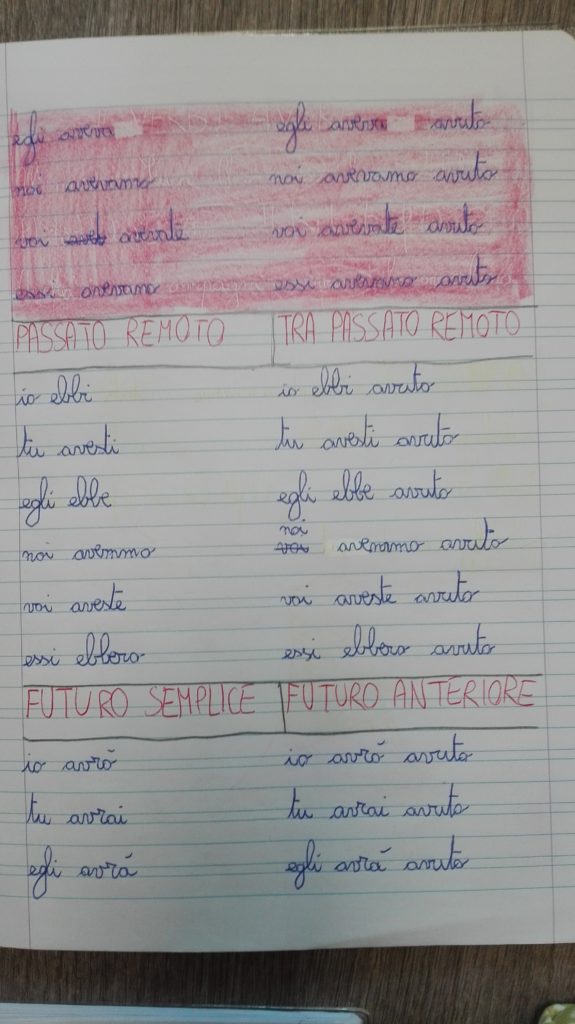 egli aveva egli aveva avuto
noi avevamo noi avevamo avuto
voi avevate voi avevate avuto
essi avevano essi avevano avuto
PASSATO REMOTO TRA PASSATO REMOTO
io ebbi io ebbi avuto
tu avesti tu avesti avuto
egli ebbe egli ebbe avuto
noi avemmo noi avemmo avuto
voi aveste voi aveste avuto
essi ebbero essi ebbero avuto
FUTURO SEMPLICE FUTURO ANTERIORE
io avró io avró avuto
tu avrai tu avrai avuto
egli avrá egli avrá avuto